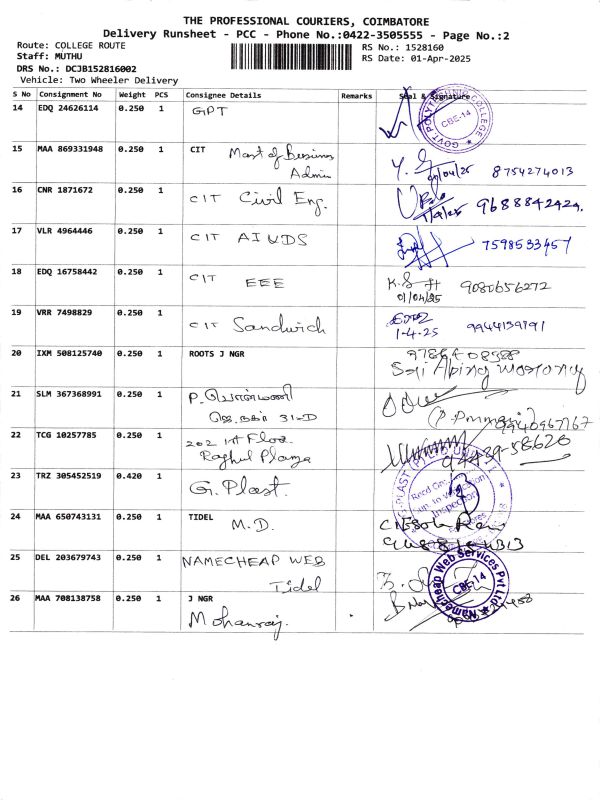 THE PROFESSIONAL COURIERS, COIMBATORE
Delivery Runsheet - PCC - Phone No.:0422-3505555 - Page No.:2
Route: COLLEGE ROUTE
RS No.: 1528160
Staff: MUTHU
RS Date: 01-Apr-2025
DRS No.: DCJB152816002
Vehicle: Two Wheeler Delivery
S No Consignment No Weight PCS Consignee Details Remarks Seal & Signature
14 EDQ 24626114 0.250 1 GPT
GOVT. POLYTECHNIC COLLEGE CBE-14
15 MAA 869331948 0.250 1 CIT Mast of Business
Admin
8754274013
16 CNR 1871672 0.250 1 CIT Civil Eng.
9688842424.
17 VLR 4964446 0.250 1 CIT AIUDS 7598533457
18 EDQ 16758442 0.250 1 CIT EEE 9080656272
01/04/25
19 VRR 7498829 0.250 1 CIT Sandwich
1-4-25 9944139791
20 IXM 508125740 0.250 1 ROOTS J NGR
21 SLM 367368991 0.250 1 P. பொன்மணி
22 TCG 10257785 0.250 1 202 1st Floor
Raghul Plaza
23 TRZ 305452519 0.420 1 G. Plast.
24 MAA 650743131 0.250 1 TIDEL M.D.
25 DEL 203679743 0.250 1 NAMECHEAP WEB
Tidel
Namecheap Web Services Pvt Ltd CBE-14
26 MAA 708138758 0.250 1 J NGR
Mohanraj.